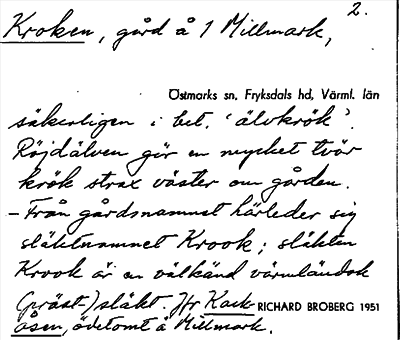 2.
Kroken, gård å 1 Millmark,
Östmarks sn, Fryksdals hd, Värml. län
säkerligen i bet. 'älvkrök'.
Röjdälven gör en mycket tvär
krök strax väster om gården.
- Från gårdsnamnet härleder sig
släktnamnet Krook; släkten
Krook är en välkänd värmländsk
(präst-)släkt. Jfr Krok-
RICHARD BROBERG 1951
åsen, ödetomt å Millmark.